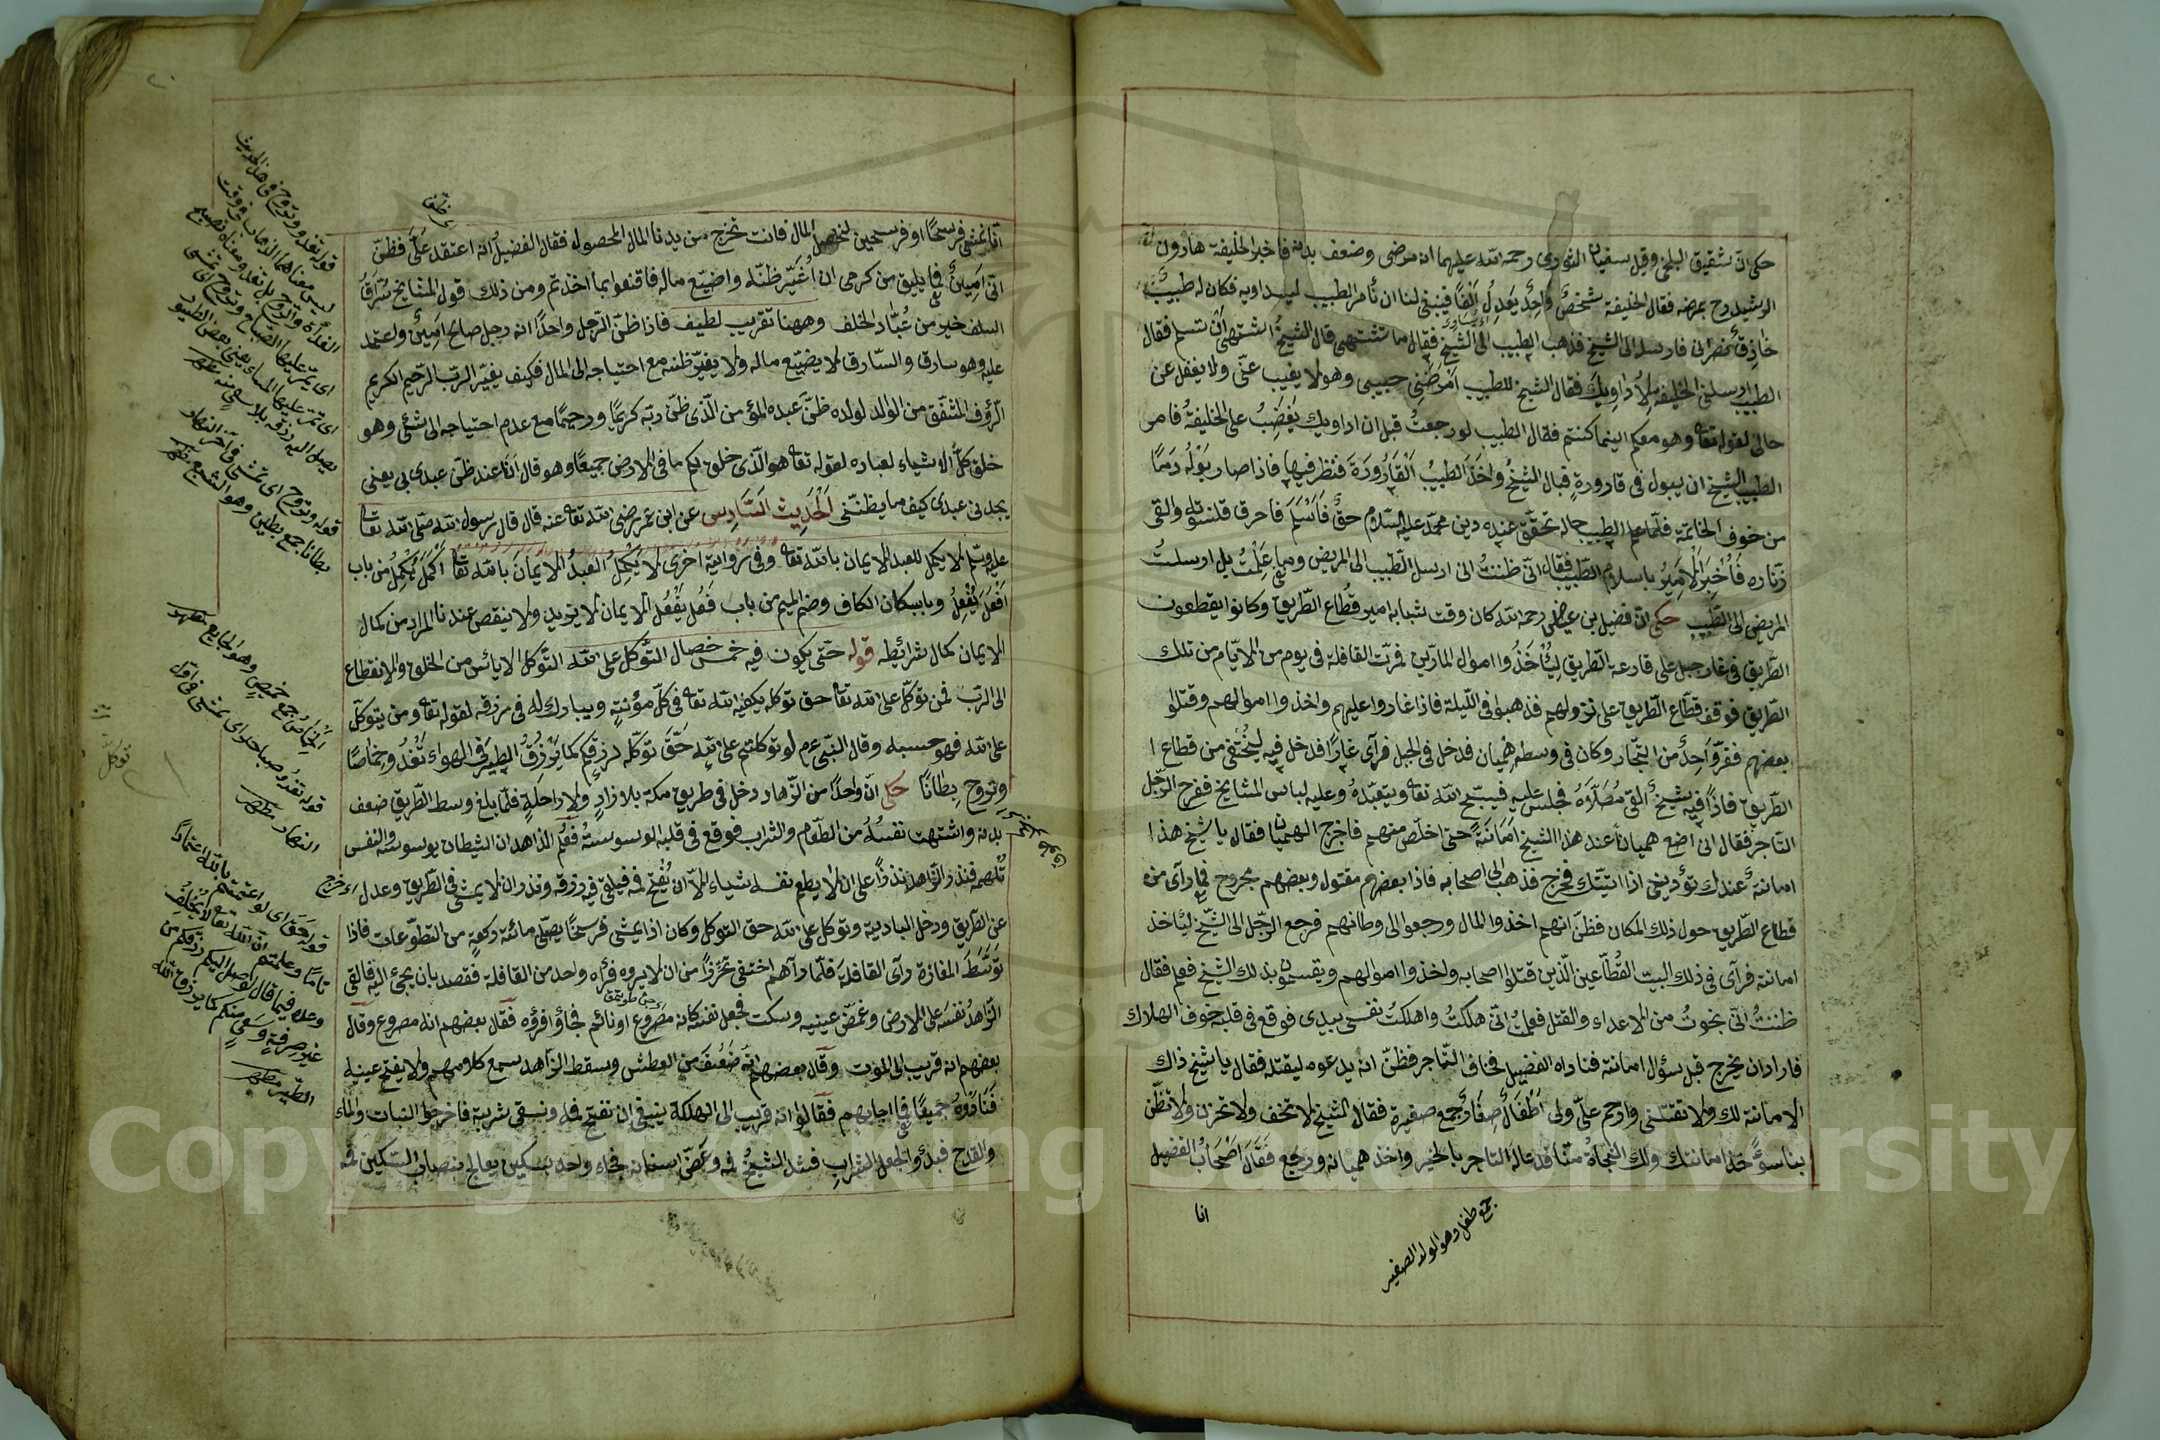 حكى ان شقيق البلخى وقيل سفيان الثورى رحمة الله عليهما ان مرضى وضعف بدنه فاخبر الخليفة هارون
الرشيد مرضه فقال الخليفة شخصٌ واحِدٌ يَعْدِلُ اَلْفًا فينبغى لنا ان نُأمر الطبيب ليداويه فكان له طبيبٌ
حَاذِقٌ نصرانى فارسله الى الشيخ فذهب الطبيب الى الشيخ فقال ما تشتهى قال الشيخُ اشتهى اَنْ تسلم فقال
الطبيب ارسلنى الخليفة لِاُدَاوِيَكَ فقال الشيخ للطبيب اَمْرَضَنِى حبيبى وهو لا يغيب عنّى ولا يغفل عن
حالى لقوله تعا وهو معكم اينما كنتم فقال الطبيب لو رجعتُ قبل ان اداويك يَغْضِبُ على الخليفةُ فامر
الطبيب الشيخ ان يبول فى قارورةٍ فبال الشيخُ واَخَذَ الطبيبُ اَلْقَارُورَةَ فنظر فيها فاذا صار بَوْلُه دَمًا
من خوف الخاتمة فلمّا علم الطبيب حاله تحقّق عنده دين محمّد عليه السلام حقٌّ فَاَسْلَمَ فاحرق قلنسوته والقى
زنّاره فَاُخْبِرَ اْلاَمِيرُ باسلام الطّبيب فقال انّى ظننتُ انى ارسل الطّبيب الى المريض وما عَلِمْتُ بل ارسلتُ
المريض الى الطّبيب حكى انّ فضيل بن عياض رحمه الله كان وقت شبابه امير قُطّاع الطّريق وكانوا يقطعون
الطّريق فى غار جبل على قارعة الطّريق لِيُأْخَذُوا اموال المارّين فمرّت القافلة فى يوم من الايّام من تلك
الطّريق فوقف قطّاع الطّريق على نزولهم فذهبوا فى اللّيلة فاذا غاروا عليهم واخذوا اموالهم وقتلوا
بعضهم ففرّ واحِدٌ من التجّار وكان فى وسطه هِمْيان فدخل فى الجبل فرآى غارًا فدخل فيه ليُخْتَفى من قطاع ا
الطّريق فاذًا فيه شيخٌ اَلْقَى مُصَلاّهُ فجلس عليه فيسبّح الله تعا ويتعبّدهُ وعليه لباس المشايخ ففرح الرّجل
التاجر فقال انى اضع هميانًا عند هذا الشيخ اَمَانَةً حتى اخلّص منهم فاخرج الهميان فقال يا شيخ هذا
امانةٌ عندك تؤدينى اذا اتيتك فخرج فذهب الى اصحابه فاذا بعضهم مقتول وبعضهم مجروح فما رآى من
قطاع الطّريق حول ذلك المكان فظنّ انهم اخذوا المال ورجعوا الى وطانهم فرجع الرّجل الى الشّيخ ليُأخذ
امانته فرآى فى ذلك البيت القُطّاعين الّذين قتلوا اصحابه واخذوا اموالهم ويقسمون بذلك الشيخ فعلم فقال
ظننتُ انّى نجوتُ من الاعداء والقتل فعلمتُ انّى هلكتُ واهلكتُ نفسى بيدى فوقع فى قلبه خوف الهلاك
فاراد ان يخرج قبل سؤال امانته فناداه الفضيل فخاف التّاجر فظنّ انه يدعوه ليقتله فقال يا شيخ ذاك
الامانة لك ولا تقتلنى وارحم علىّ ولى اَطْفَالٌ صِغَارٌ جمع صغيرة فقال الشيخ لا تخف ولا تحزن ولا تظنّ
بنا سوءً خذ امانتك ولك النجاةُ منّا فدعا له التاجر بالخير واخذ هميانه ورجع فَقَالَ اَصْحَابُ الفضيل
جمع طفل وهو الولد الصغير
انا
انّا نمشى فرسخًا او فرسخين لنحصل المال فانت تخرج من يدنا المال المحصوله فقال الفضيل انه اعتقد علىّ فظنّ
انّى اَمِينٌ فما يليق من كرمى ان اُغَيّر ظنّه واضيّع ماله فاقنعوا بما اخذتم ومن ذلك قول المشايخ سُرّاقُ
السلف خير من عُبّاد الخلف وههنا تقريب لطيف فاذا ظنّ الرّجل واحدًا انه رجل صالح اَمِينٌ واعتمد
عليه وهو سارق والسّارق لا يضيّع ماله ولا يغيّر ظنه مع احتياجه الى المال فكيف يغيّر الربّ الرّحيم الكريم
الرّؤف المشفّق من الوالد لولده ظنّ عبده المؤمن الّذى ظنّ ربّه كريمًا ورحيمًا مع عدم احتياجه الى شئ وهو
خلق كلّ الاشياء لعباده لقوله تعا هو الّذى خلق لكم ما فى الارض جميعًا وهو قال اَنَا عند ظنّ عبدى بى يعنى
يجدنى عبدى كيف ما يظنّنى اَلْحَدِيثُ السَّادِس عن ابن عمر رضى الله تعا عنه قال قال رسول الله صلّى الله تعا
عليه وسلّم لا يكمل للعبد الايمان بالله تعا وفى رواية اخرى لا يُكْمِلُ العبدُ الايمانَ بالله تعا اَكْمَلَ يُكْمِلُ من باب
اَفْعَلَ يُفْعِلُ وباسكان الكاف وضم الميم من باب فَعُل يَفْعُلُ الايمان لا يزيد ولا ينقص عندنا المراد من كمال
الايمان كمال شرائطه قوله حتّى يكون فيه خمس خصال التوّكل على الله التّوكل الايائس من الخلق والانقطاع
الى الربّ فمن توكّل على الله تعا حق توكله يكفيه الله تعا فى كلّ مؤنيةٍ ويبارك له فى مرزقه لقوله تعا ومن يتوكّل
على الله فهو حسبه وقال النّبى ع م لو توكلتم على الله حَقَّ توكّله لرزقكم كما يَرْزُقُ الطير فى الهواء تَغْدُو خِمَاصًا
وتروح بِطَانًا حكى انّ واحدًا من الزّهاد دخل فى طريق مكة بلا زادٍ ولا راحلةٍ فلمّا بلغ وسط الطّريق ضعف
بدنه واشتهت نفسُهُ من الطّعام والشراب فوقع فى قلبه الوسوسةُ فَعَلِمَ الزاهد ان الشيطان يوسوسه والنفس
تُلْهِمه فنذر الزّاهد نذرًا على ان لا يطعم نفسه شياء الاّ ان يُفْتح فمه فيلقى فيه رزقه ونذر ان لا يمشى فى الطّريق وعدل اى خرج
عن الطّريق ودخل البادية وتوكل على الله حق التوكل وكان اذا يمشى فرسخًا يصلّى مائة ركعةٍ من التطوّعات فاذا
تَوَسَّطَ المفازة رآى القافلة فلمّا رآهم اختفى تحرّزًا من ان لا يروه فرءاه واحد من القافلة فقصد بان يجئ اليه فالقى
الزّاهدُ نفسَه على الارض وغمّض عينيه وسكت فجعل نفسه كانه مصروع او نائم فجاؤ افرؤه فقال بعضهم انه مصروع وقال
بعضهم انه قريب الى الموت وقال بعضهم انه ضَعُفَ من العطش وسقط الزّاهد سمع كلامهم ولا يفتح عينيه
فَنَادَوْهُ جَمِيعًا فما اجابهم فقالوا انه قريب الى الهلكة ينبغى ان نفتح فمه ونسقى شربة فاخرجوا النبات والماء
والقدح فبدؤا لجعل الشراب فشد الشيخُ فمه وعَضّ اسنانه فجاء واحد بسكين يعالج بنصاب السّكين فمه
قوله تغدو وتروح فى هذا الحديث
ليس معناهما الذهاب فى وقت
يصل اليه رزقه بلا سعى منه
قوله وتروح اى تمشى فى آخر النهار
بطانا جمع بطين وهو الشبيع
الخماص جمع خميص وهو الجايع
قوله تغدو صباحا اى تمشى فى اوّل
النهار
قوله حَقّ اى لو اعتمدتم بالله اعتمادًا
تامًا وعلمتم انّ الله تعا لا يُخْلِفُ
وعده فيما قال لوصل اليكم رزقكم من
غير حرفةٍ وسعىٍ منكم كما يرزق الله
الطير
توكل